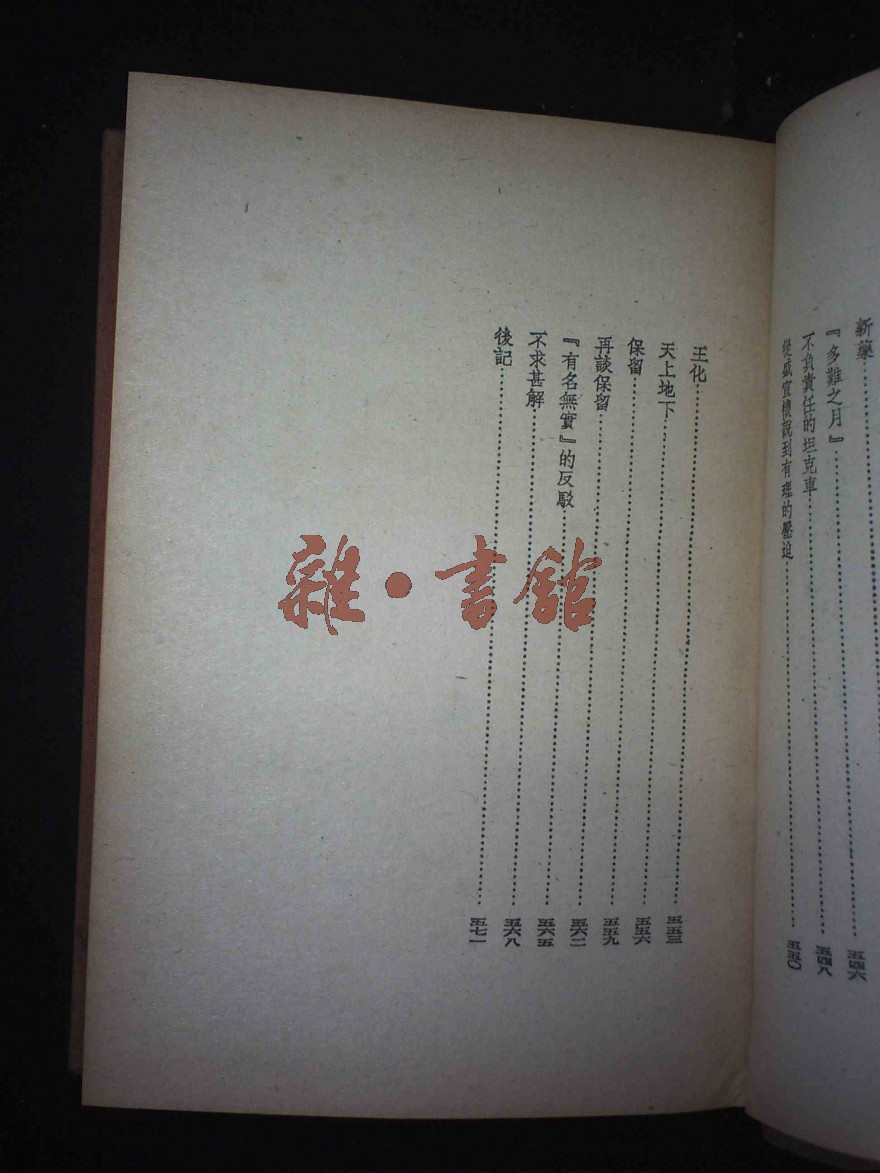 新藥
『多難之月』 五四六
不負責任的坦克車 五四八
從盛宣懷說到有理的壓迫 五五〇
王化 五五三
天上地下 五五六
保留 五五九
再談保留 五六二
『有名無實』的反駁 五六五
不求甚解 五六八
後記 五七一
雜·書館